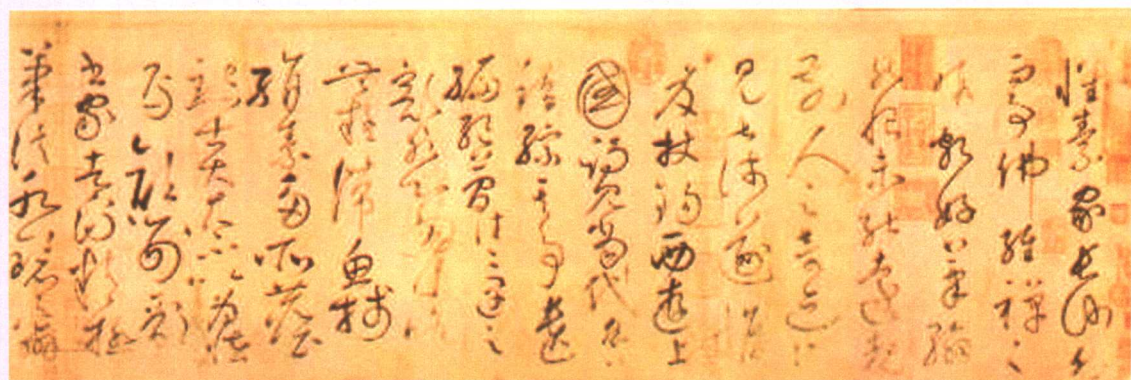 懷素家長沙幼
而事佛經禪之
暇頗好筆翰
然恨未能遠覩
前人之奇迹所
見甚淺遂擔
笈杖錫西遊上
國謁見當代名公
錯綜其事遺
編絕簡往往遇之
豁然心胸略
無疑滯魚牋
絹素多所塵
點士大夫不以為怪
焉顏刑部
書家者流精極
筆法水鏡之辯